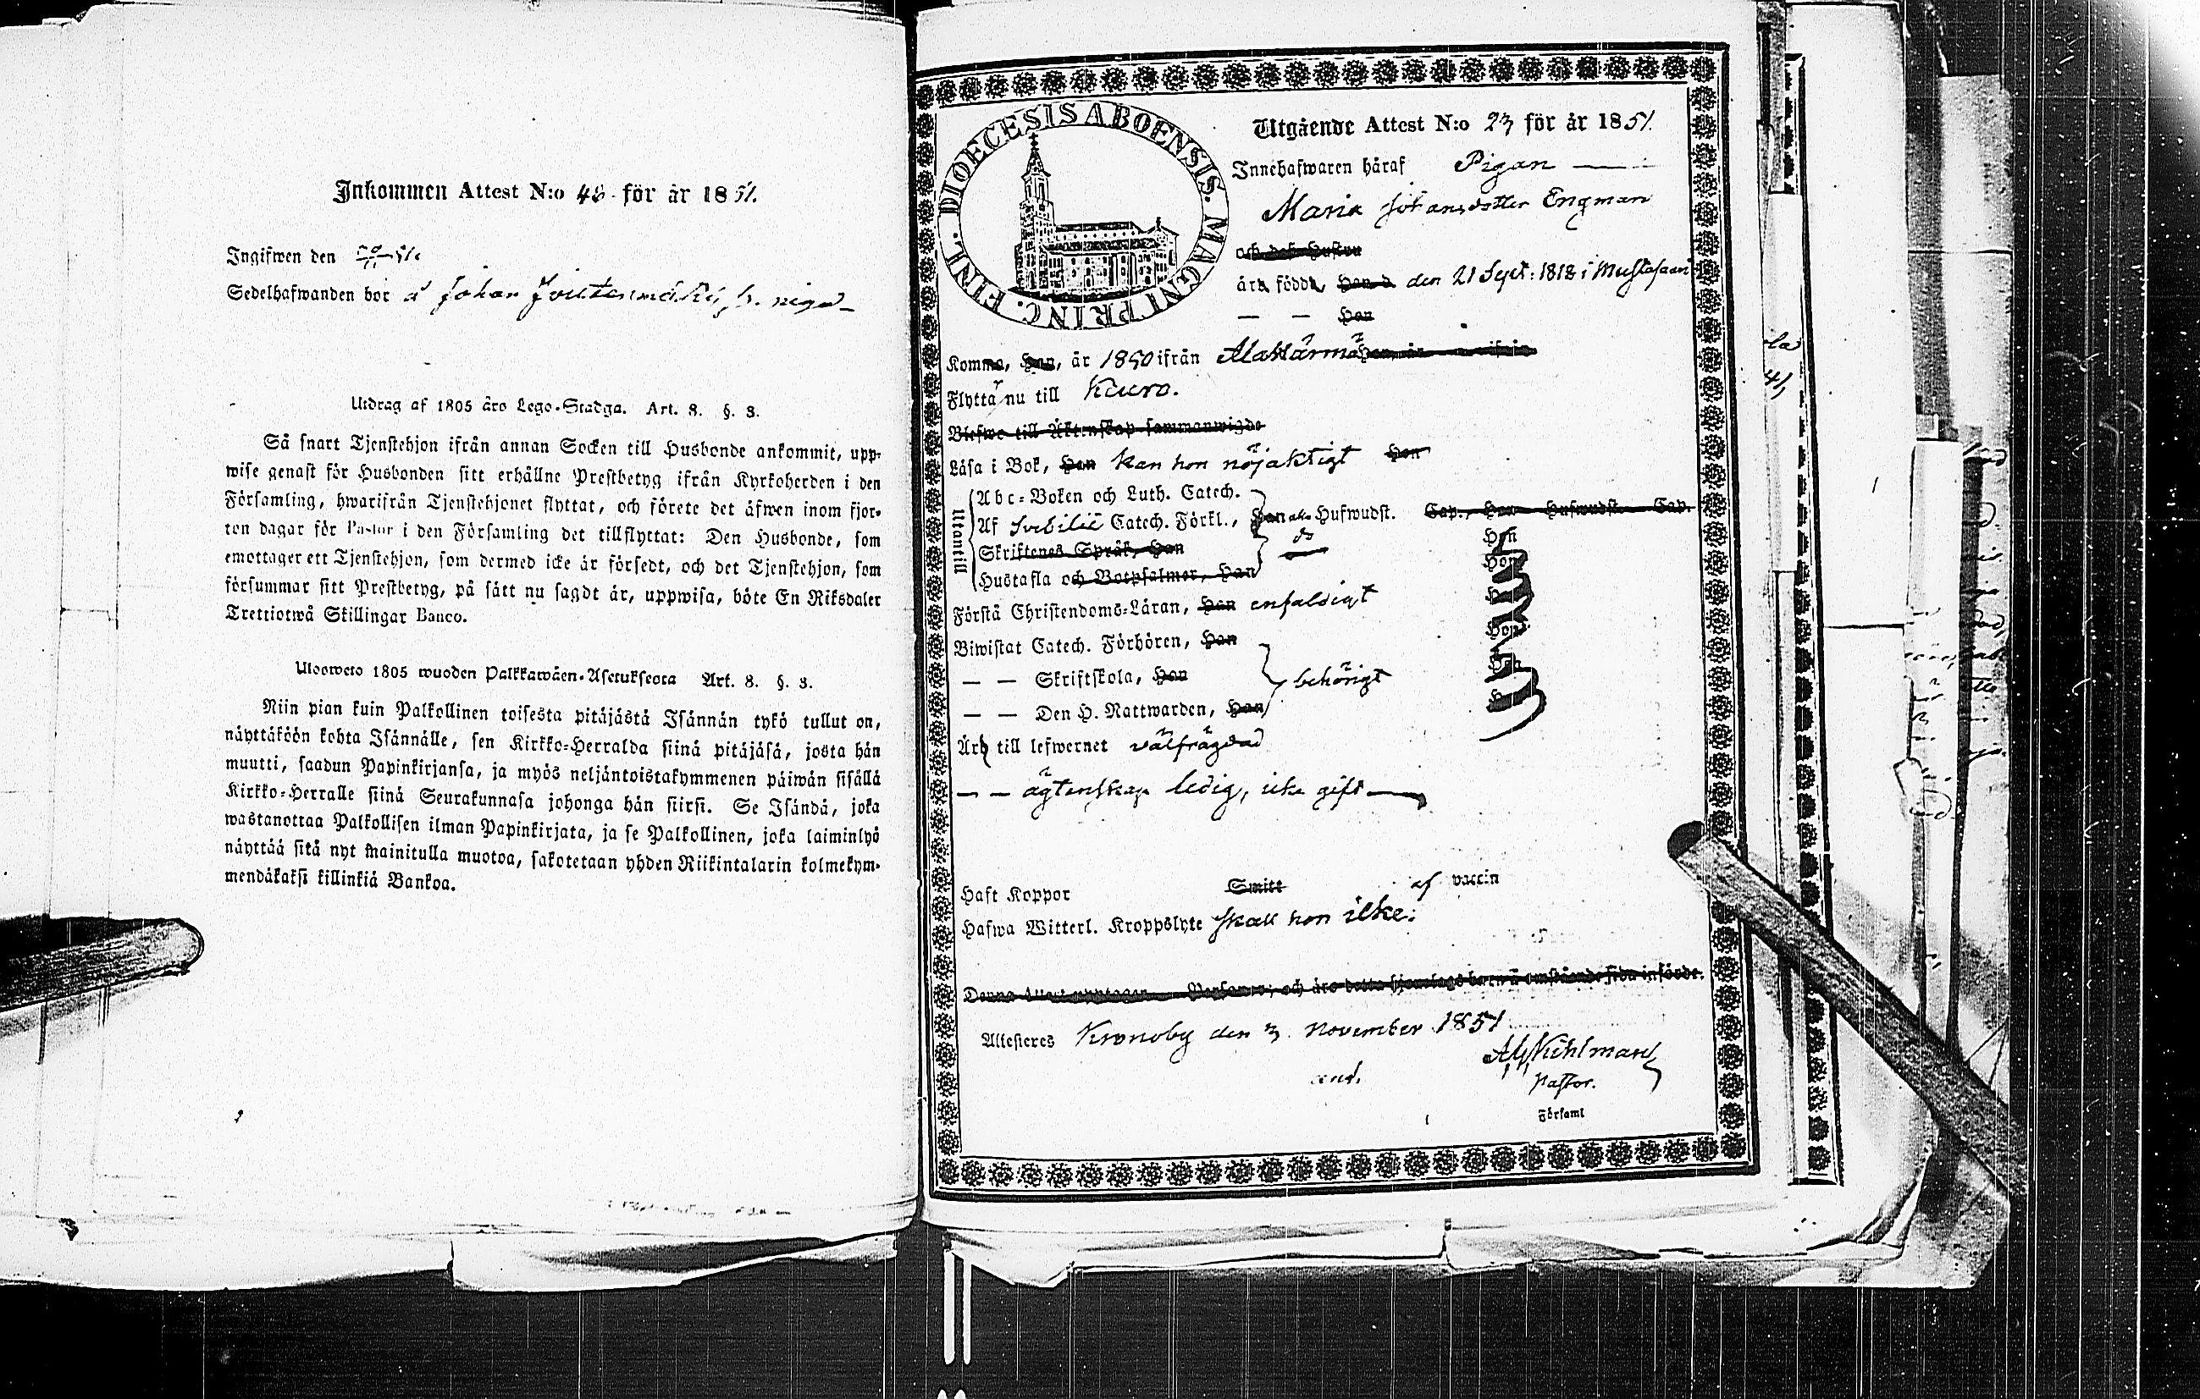 Inkommen Attest N:o 48 för år 1851.
Ingifwen den
Sedelhafwanden bor å Johan
Utdrag af 1805 års Lego-Stadga. Art. 8. §. 3.
Så snart Tjenstehjon ifrån annan Socken till Husbonde ankommit, upp-
wise genast för Husbonden sitt erhållne Prestbetyg ifrån Kyrkoherden i den
Församling, hwarifrån Tjenstehjonet flyttat, och förete det äfwen inom fjor-
ton dagar för Pastor i den Församling det tillflyttat: Den Husbonde, som
emottager ett Tjenstehjon, som dermed icke är försedt, och det Tjenstehjon, som
försummar sitt Prestbetyg, på sätt nu sagdt är, uppwisa, böte En Riksdaler
Trettiotwå Skillingar Banco.
Ulosweto 1805 wuoden Palkkawäen-Asetuksesta Art. 8. §. 3.
Niin pian kuin Palkollinen toisesta pitäjästä Isännän tykö tullut on,
näyttäköön kohta Isännälle, sen Kirkko-Herralda siinä pitäjäsä, josta hän
muutti, saadun Papinkirjansa, ja myös neljäntoistakymmenen päiwän sisällä
Kirkko-Herralle siinä Seurakunnasa johonga hän siirsi. Se Isändä, joka
wastanottaa Palkollisen ilman Papinkirjata, ja se Palkollinen, joka laiminlyö
näyttää sitä nyt mainitulla muotoa, sakotetaan yhden Riikintalarin kolmekym-
mendäkaksi killinkiä Bankoa.
DIOECESIS ABOENSIS. MAGNI PRINC. FINL.
Utgående Attest N:o 23 för år 1851.
Innehafwaren häraf Pigan
Maria Johansdotter Engman
och dess Hustru
är född, Han d. den 21 Sept: 1818 i Mustasaari
— — Hon
Komma, Han, år 1850 ifrån Alahärmä
Flyttar nu till Kauro.
Blefwo till Äktenskap sammanwigde
Läsa i Bok, Han kan hon nöjaktigt Hon
Utantill
Abc-Boken och Luth. Catech.
Af Svebilii Catech. Förkl., Han alla Hufwudst. Cap., Hon Hufwudst. Cap.
Skriftenes Språk, Han do Hon
Hustafla och Botpsalmer, Han Hon
Förstå Christendoms-Läran, Han enfaldigt Hon
Biwistat Catech. Förhören, Han Hon
— — Skriftskola, Han behörigt Hon
— — Den H. Nattwarden, Han Hon
Är till lefwernet välfrägdad
— — ägtenskap ledig, icke gift
Haft Koppor Smitt af vaccin
Hafwa Witterl. Kroppslyte skall hon icke.
Denna Attest upptager Personer, och äro detta hjonelags barn å omstående sida införde.
Attesteras Kronoby den 3 November 1851
Kihlman
Pastor.
Församl